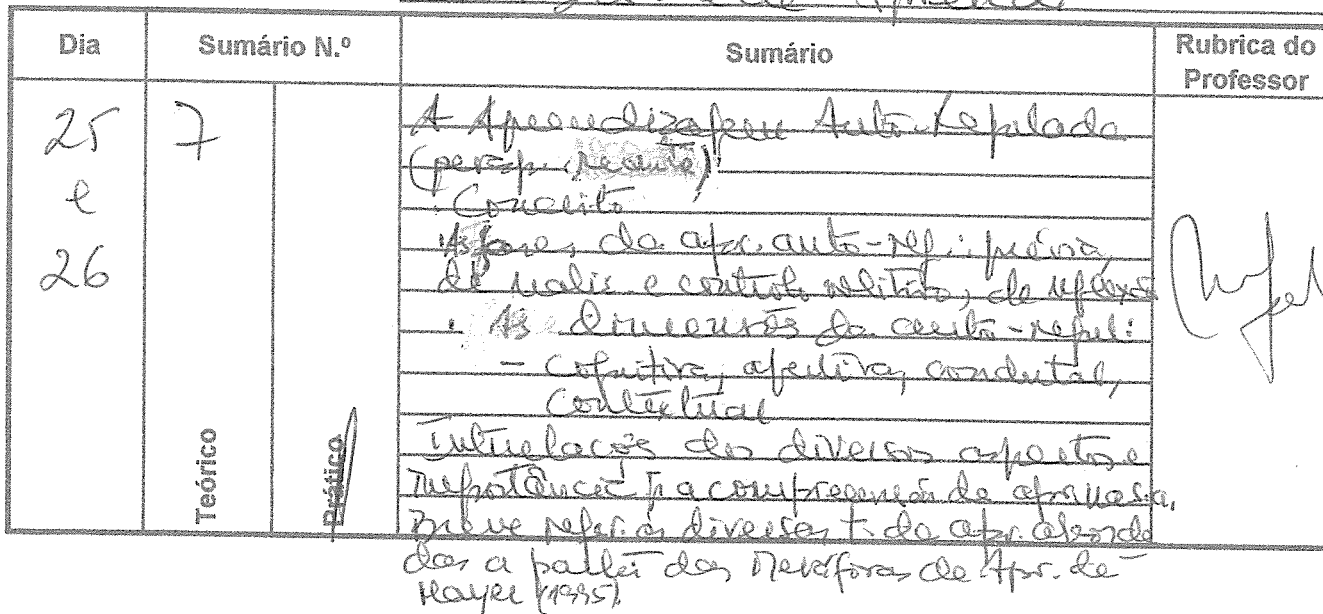 Dia
Sumário N.º
Sumário
Rubrica do
Professor
25
e
26
7
Teórico
Prático
A Aprendizagem Auto-Regulada
(persp. recente)
. Conceito
. As fases da apr. auto-reg.: prévia,
de realiz. e controlo volitivo, de reflexão
. As dimensões da auto-regul:
- Cognitiva, afectiva, condutal,
Contextual
Interrelações dos diversos aspectos e
importância p. a compreensão da
Breve refer. às diversas t. da apr. aborda
das a partir das Metáforas de Apr. de
Mayer (1995)